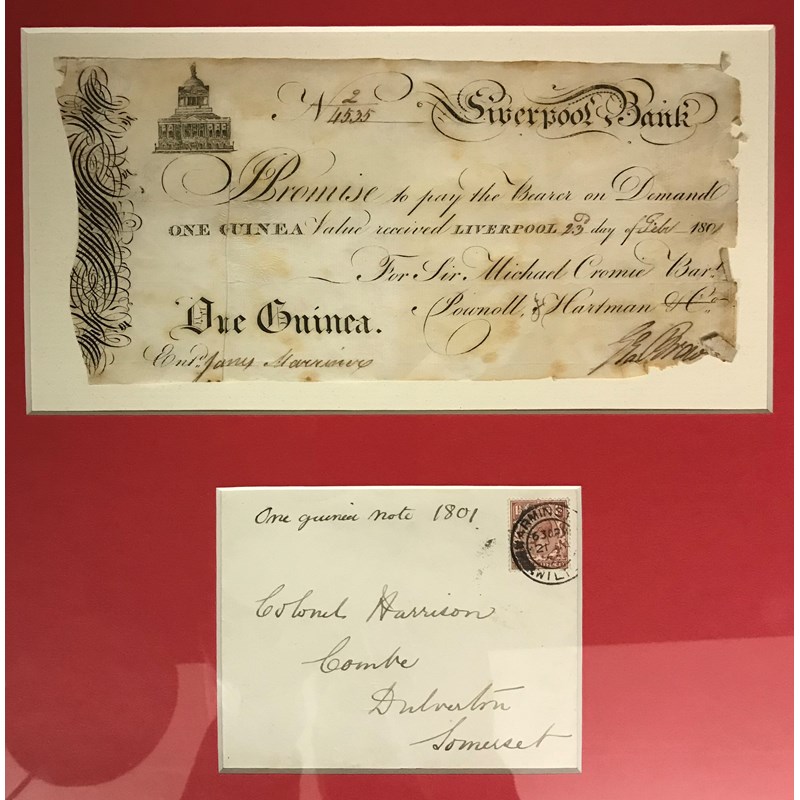 No 2/4535 Liverpool Bank
I Promise to pay the Bearer on Demand
ONE GUINEA Value received LIVERPOOL 23d day of Feb 1801
For Sir Michael Cromie Bart
Pownoll, & Hartman & Co
One Guinea.
Entd James Marriner
One guinea note 1801
WARMINS
WILT
Colonel Harrison
Combe
Dulverton
Somerset